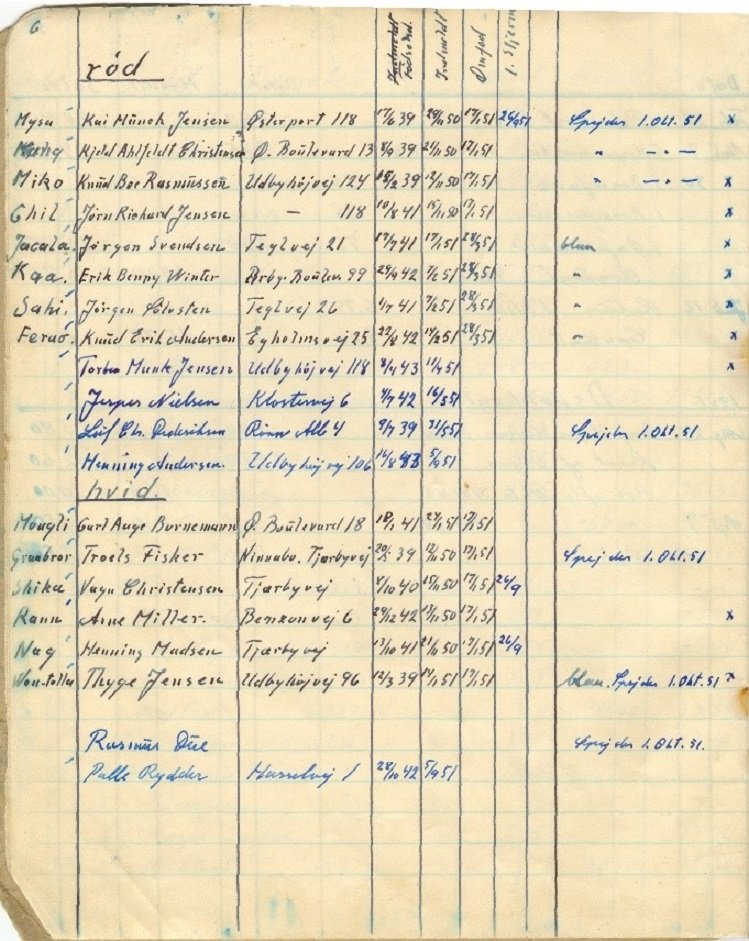 6
röd
Indmeldt Födselsd. Indmeldt Opfød 1. stjerne
Mysa Kai Münch Jensen Østerport 118 17/6 39 29/11 50 17/1 51 26/9 51 Spejder 1. Okt. 51 x
Kjeld Ahlfeldt Christensen Ø. Boulevard 13 8/9 39 21/11 50 17/1 51 " — " —
Miko Knud Boe Rasmussen Udbyhøjvej 124 39 12/11 50 17/1 51 " — " — x
Chil Jörn Richard Jensen — 118 10/8 41 15/11 50 17/1 51 x
Jacala Jörgen Svendsen Teglvej 21 17/7 41 17/1 51 28/3 51 blaa x
Kaa. Erik Benny Winter Boulev. 99 29/9 42 7/2 51 28/3 51 " x
Sahi. Jörgen Teglvej 26 4/7 41 7/2 51 28/3 51 " x
Ferao. Knud Erik Andersen Egholmsvej 25 22/8 42 14/2 51 28/3 51 " x
Torben Munk Jensen Udbyhöjvej 118 8/4 43 11/4 51 x
Jesper Nielsen Klostervej 6 4/7 42 16/5 51
Leif Chr. Rönne Allé 4 9/7 39 31/5 51 Spejder 1. Okt. 51
Henning Andersen. Udbyhöjvej 106 14/8 43 5/9 51
hvid.
Mougli Curt Aage Bornemann Ø. Boulevard 18 18/1 41 24/1 51 17/1 51
Graabror Troels Fisker Ninnabo, Tjærbyvej 20/5 39 12/11 50 17/1 51 Spejder 1. Okt. 51
Shika Vagn Christensen Tjærbyvej 8/10 40 15/11 50 17/1 51 26/9
Rann Arne Miller. Benzonvej 6 29/12 42 13/11 50 17/1 51 x
Nag Henning Madsen Tjærbyvej 13/10 41 21/11 50 17/1 51 26/9
Won-tolla Thyge Jensen Udbyhöjvej 96 12/3 39 14/1 51 17/1 51 blaa. Spejder 1. Okt. 51 x
Rasmus Due Spejder 1. Okt. 51.
Palle Rydder Hasselvej 1 28/10 42 5/9 51